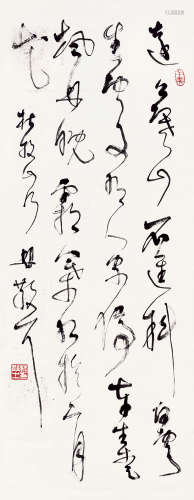 遠上寒山石徑斜白雲
生處有人家停車坐愛
楓林晚霜葉紅於二月
花 杜牧山行